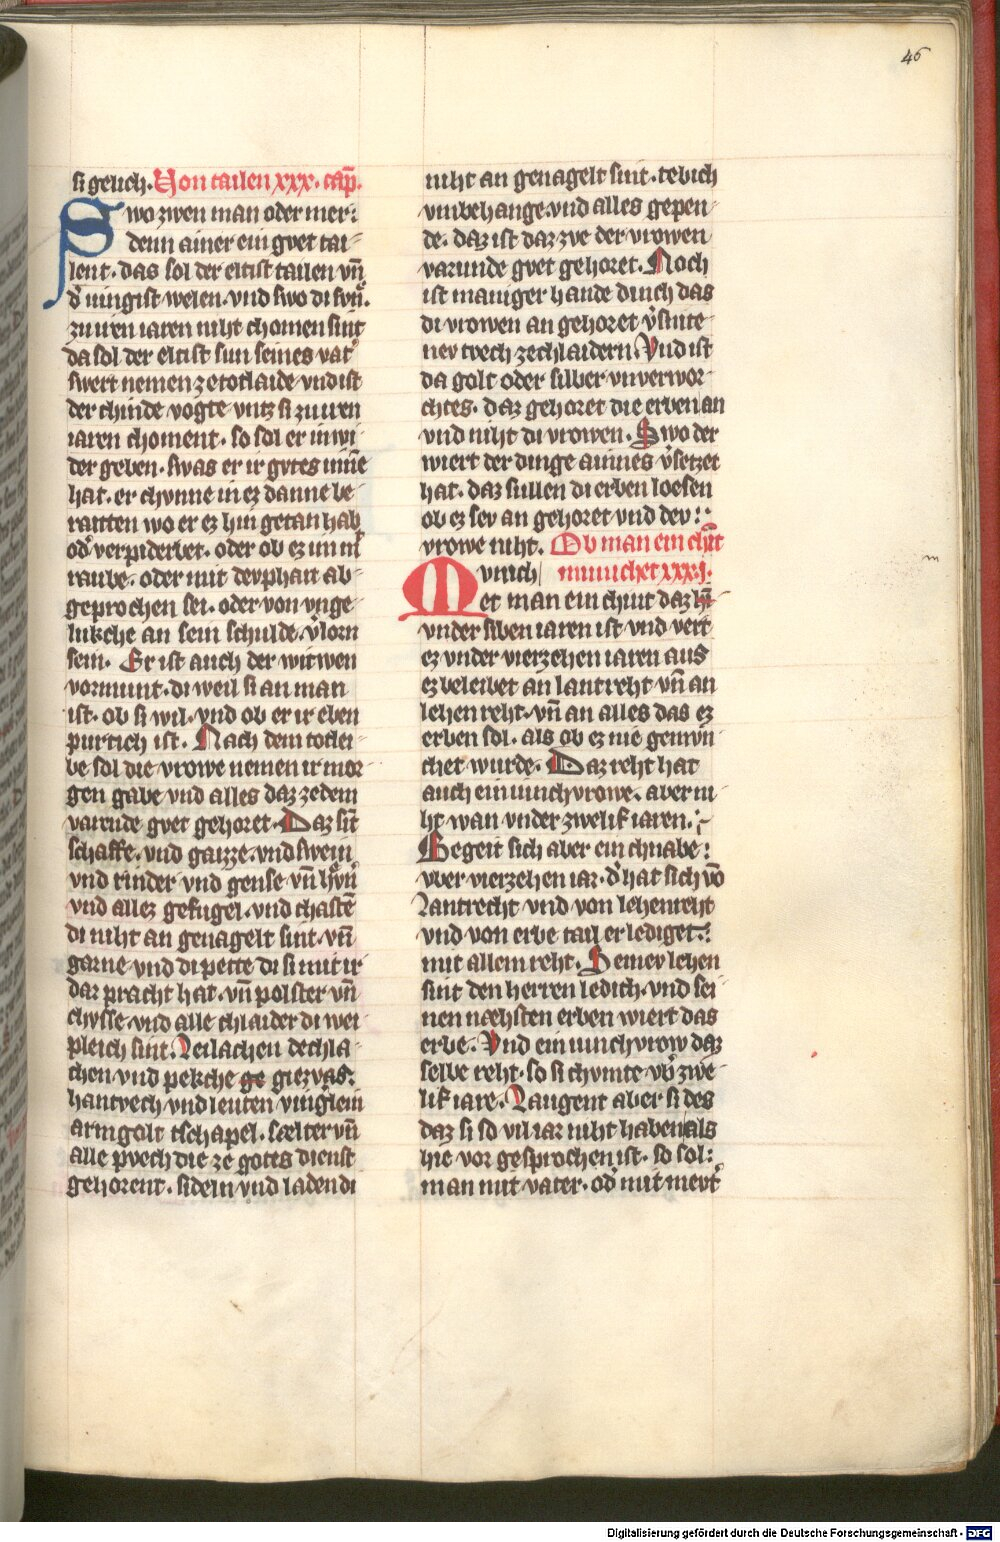 46
si gelich. Von tailen xxx. cap̄.
Swo zwen man oder mer:
denn ainer ein gvet tai-
lent. das sol der eltist tailen vn̄
d᾽ iungist welen. vnd swo di svn᾽.
zu iren iaren niht chomen sint
da sol der eltist sun seines vat᾽
swert nemen ze totlaide vnd ist
der chinde vogte vntz si zu iren
iaren choment. so sol er in wi
der geben. swas er ir gvtes inn̄e
hat. er chvnne in ez danne be-
raitten wo er ez hin getan hab
od᾽ verpiderbet. oder ob ez im m᾽
raube. oder mit devphait ab-
geprochen sei. oder von vnge-
lukche an sein schulde. v᾽lorn
sein. Er ist auch der witwen
vormunt. di weil si an man
ist. ob si wil. vnd ob er ir eben
purtich ist. Nach dem totlei-
be sol die vrowe nemen ir mor-
gen gabe vnd alles daz zedem
varende gvet gehoret. Daz sīt
schaffe. vnd gaizze. vnd swein
vnd rinder vnd gense vn̄ hvn᾽
vnd allez gefugel. vnd chastē
di niht an genagelt sint. vn̄
garne vnd di pette di si mit ir
dar pracht hat. vn̄ polster vn̄
chvsse. vnd alle chlaider di wei-
pleich sint. Leilachen dechla-
chen vnd pekche ge giezvas:
hantvech vnd leuten vinglein
armgolt tschapel. sælter vn̄
alle pvech die ze gotes dienst
gehorent. sideln vnd laden di
niht an genagelt sint. tebich
vmbehange. vnd alles gepen-
de. daz ist daz zve der vrowen
varunde gvet gehoret. Noch
ist maniger hande dinch das
di vrowen an gehoret v᾽sinte-
nev tvech ze chlaidern. Vnd ist
da golt oder silber vnverwor-
chtes. daz gehoret die erben an
vnd niht di vrowen. Swo der
wiert der dinge aaines v᾽setzet
hat. daz sullen di erben loesen
ob ez sev an gehoret vnd dev:
vrowe niht. Ob man ein chīt
Mvnich munichet xxxj.
et man ein chint daz hī
vnder siben iaren ist vnd vert
ez vnder vierzehen iaren aus
ez beleibet an lantreht vn̄ an
lehen reht. vn̄ an alles das ez
erben sol. als ob ez nie gemvn-
chet wurde. Daz reht hat
auch ein munichvrowe. aber ni-
ht wan vnder zwelif iaren.
Begeit sich aber ein chnabe:
vber vierzehen iar. d᾽ hat sich vō
Lantrecht vnd von lehenreht
vnd von erbe tail erlediget.
mit allem reht. Seinev lehen
sint den herren ledich. vnd sei-
nen næhsten erben wiert das
erbe. Vnd ein munichvrow daz
selbe reht. so si chvmte vb᾽ zwe-
lif iare. Laugent aber si des
daz si so vil iar niht haben als
hie vor gesprochen ist. so sol:
man mit vater. od᾽ mit mevt᾽
Digitalisierung gefördert durch die Deutsche Forschungsgemeinschaft - DFG